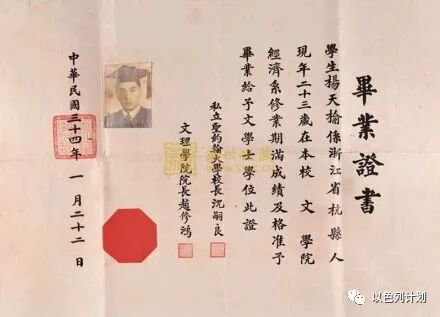 畢業證書
學生楊天掄係浙江省杭縣人
現年二十三歲在本校 文 學院
經濟系修業期滿成績及格准予
畢業給予文學士學位此證
私立聖約翰大學校長沈嗣良
文理學院院長趙修鴻
中華民國三十四年 一 月二十二 日
以色列计划